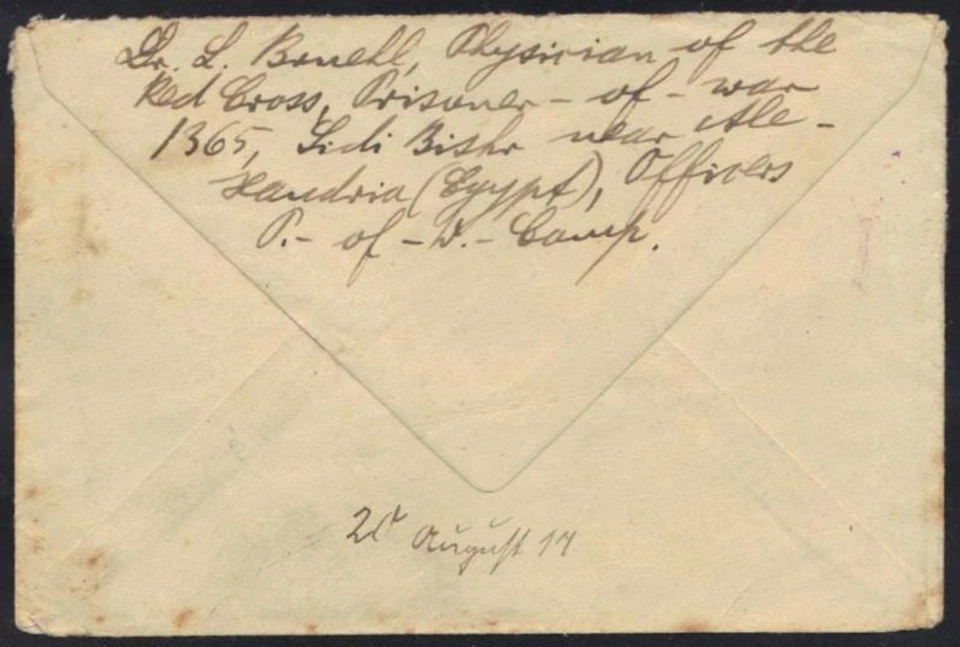 Dr. L. Bruehl, Physician of the
Red Cross, Prisoner-of-war
1365, Sidi Bishr near Ale-
xandria (Egypt), Officers
P.-of-W.-Camp.
August 17